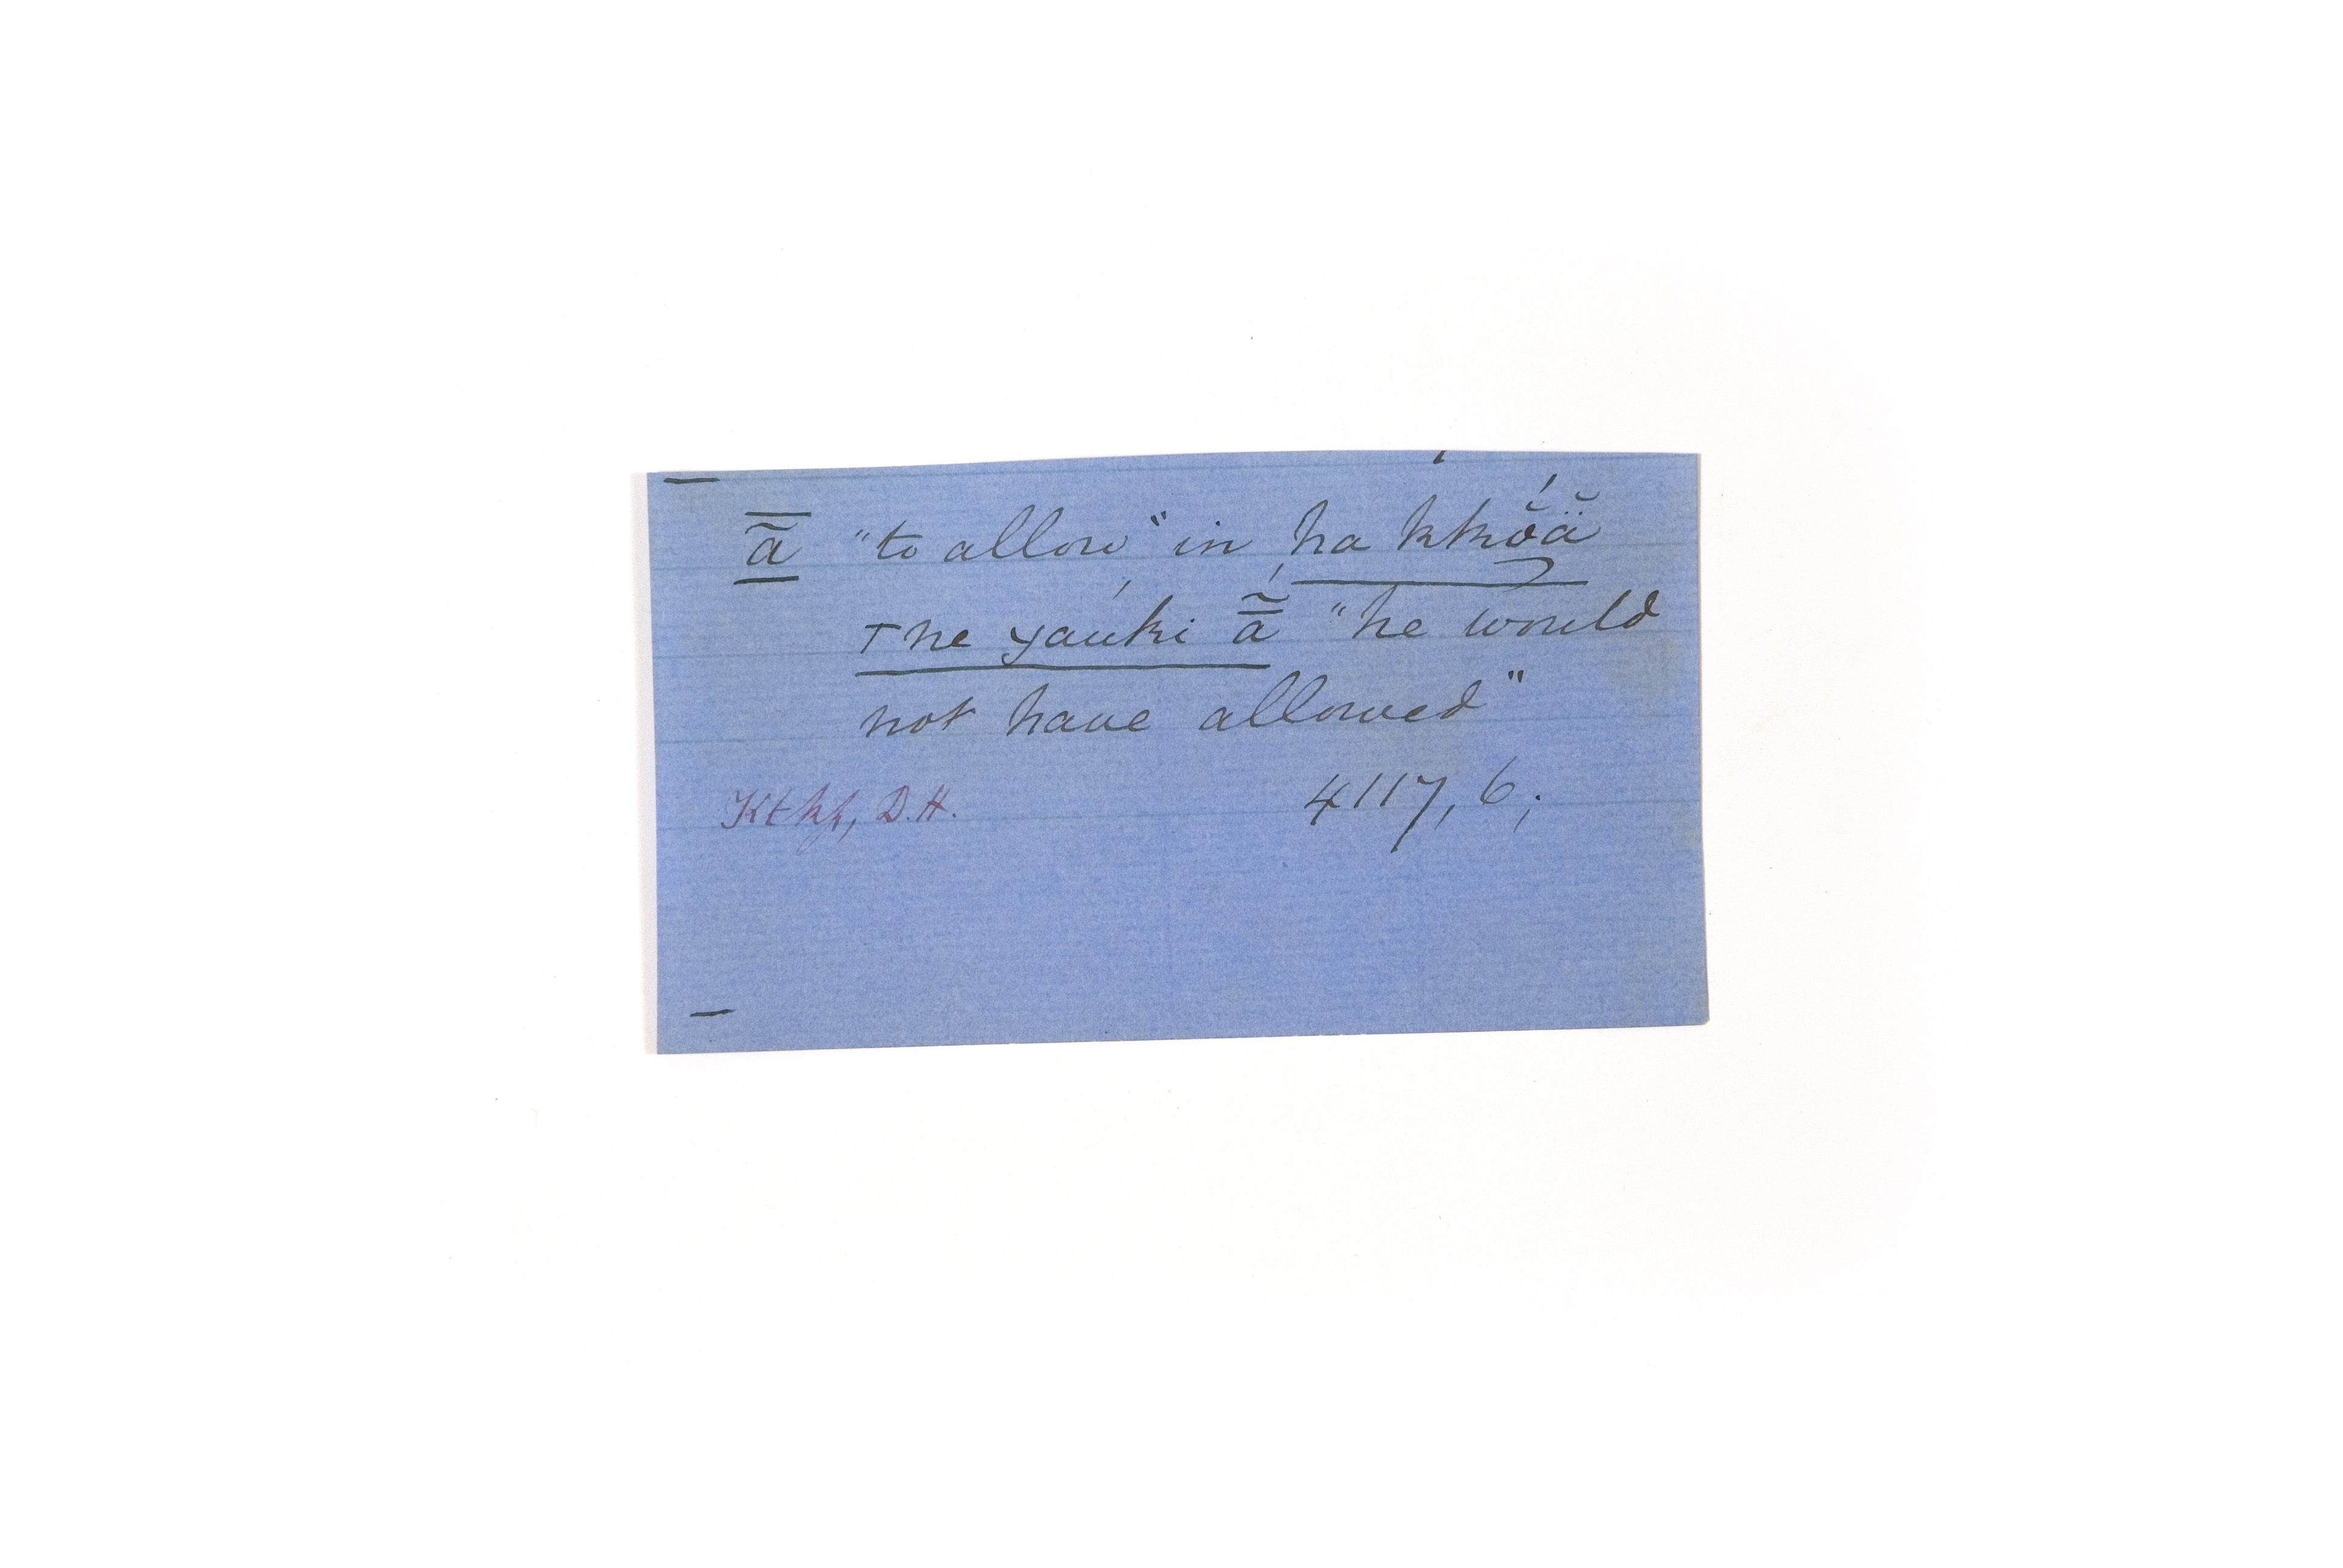 ā̃ "to allow" in ha kkŏ́ä̆
ꞇne yaúki ā̃́ "he would
not have allowed"
Ktkf, D.H. 4117, 6;